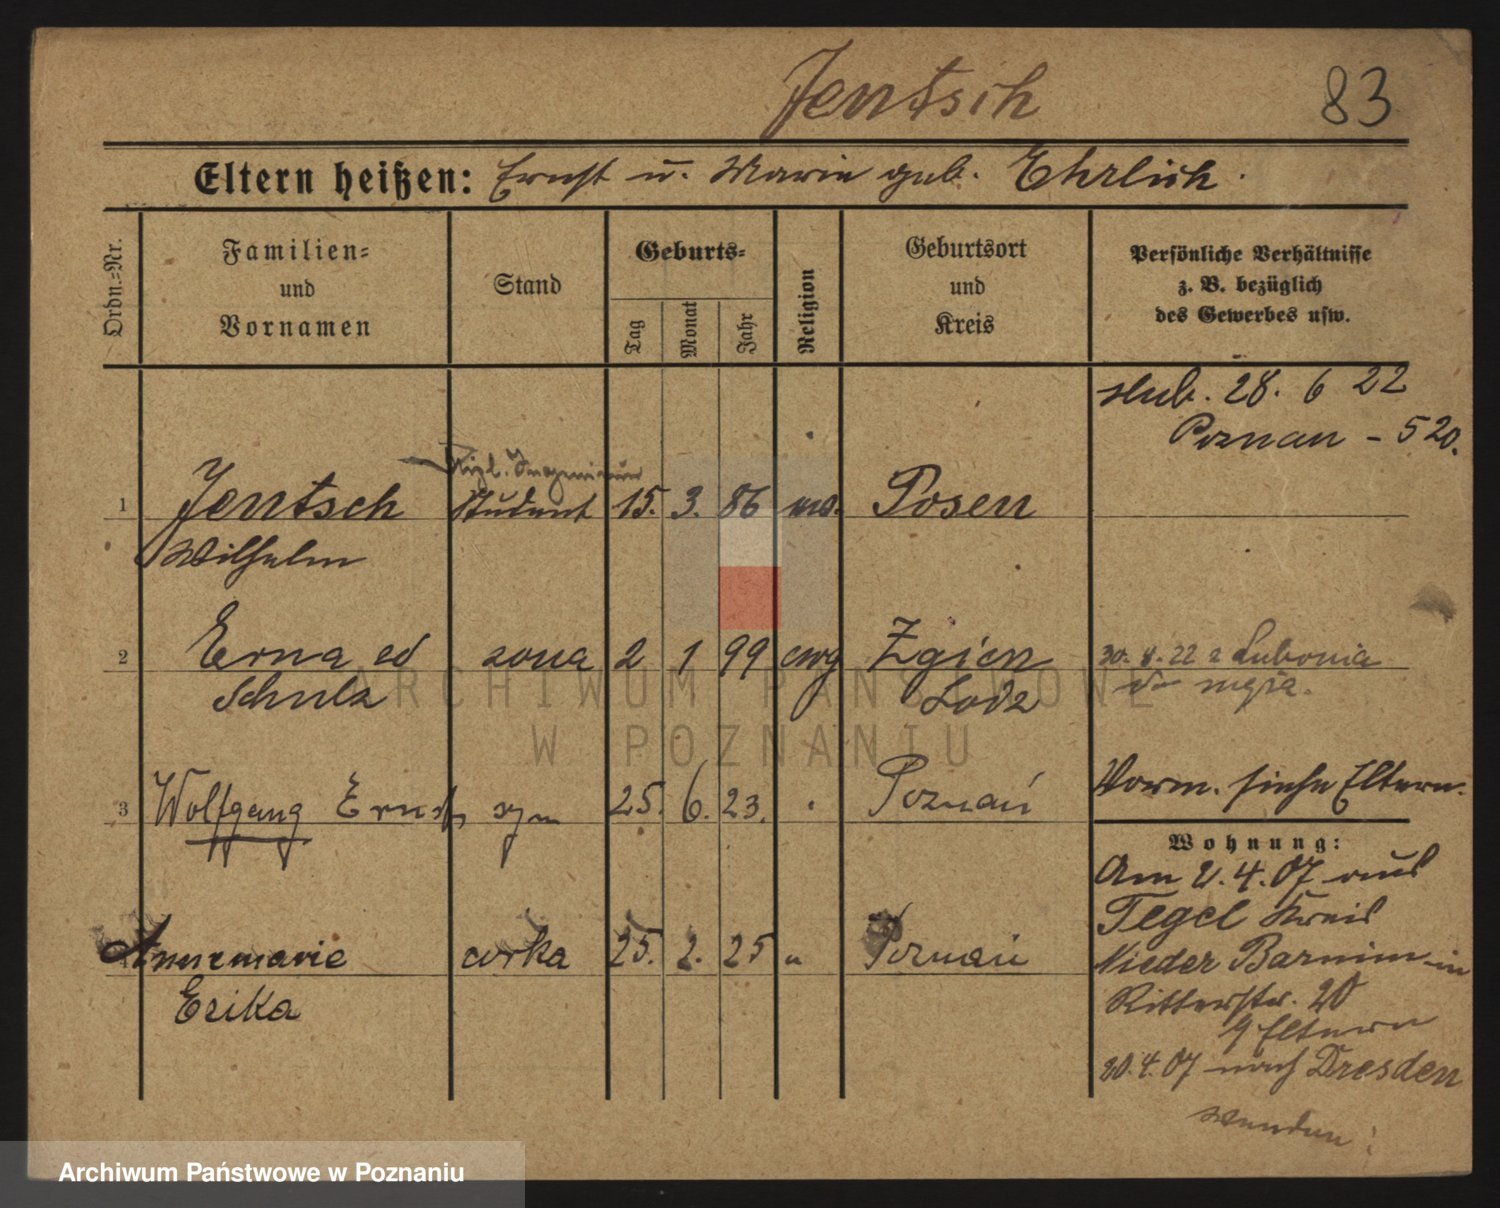 Jentsch 83
Eltern heißen: Ernst u. Marie geb. Ehrlich.
Ordn.=Nr.
Familien=
und
Vornamen
Stand
Geburts=
Tag
Monat
Jahr
Religion
Geburtsort
und
Kreis
Persönliche Verhältnisse
z. B. bezüglich
des Gewerbes usw.
slub. 28. 6 22
Poznan - 520.
Dipl. Ingenieur
1 Jentsch Student 15. 3. 86 Posen
Wilhelm
2 Erna zd zona 2 1 99 ewg Zgierz
Schulz Lodz
30. 22 z Lubonia
3 Wolfgang Ernst syn 25. 6. 23. Poznań
Vorm. siehe Eltern.
Wohnung:
Am 2. 4. 07 aus
Tegel Kreis
4 Annemarie corka 25. 2. 25 " Poznań
Erika
Nieder Barnim in
Ritterstr. 20
Eltern
20. 4. 07 nach Dresden
wenden!
ARCHIWUM PAŃSTWOWE
W POZNANIU
Archiwum Państwowe w Poznaniu